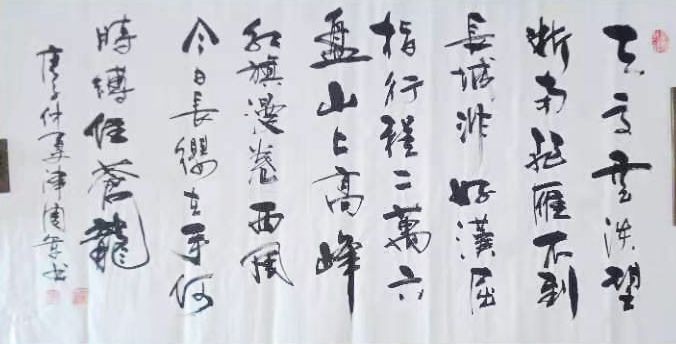 天高雲淡望
斷南飛雁不到
長城非好漢屈
指行程二萬六
盤山上高峰
紅旗漫卷西風
今日長纓在手何
時縛住蒼龍
庚子仲夏津